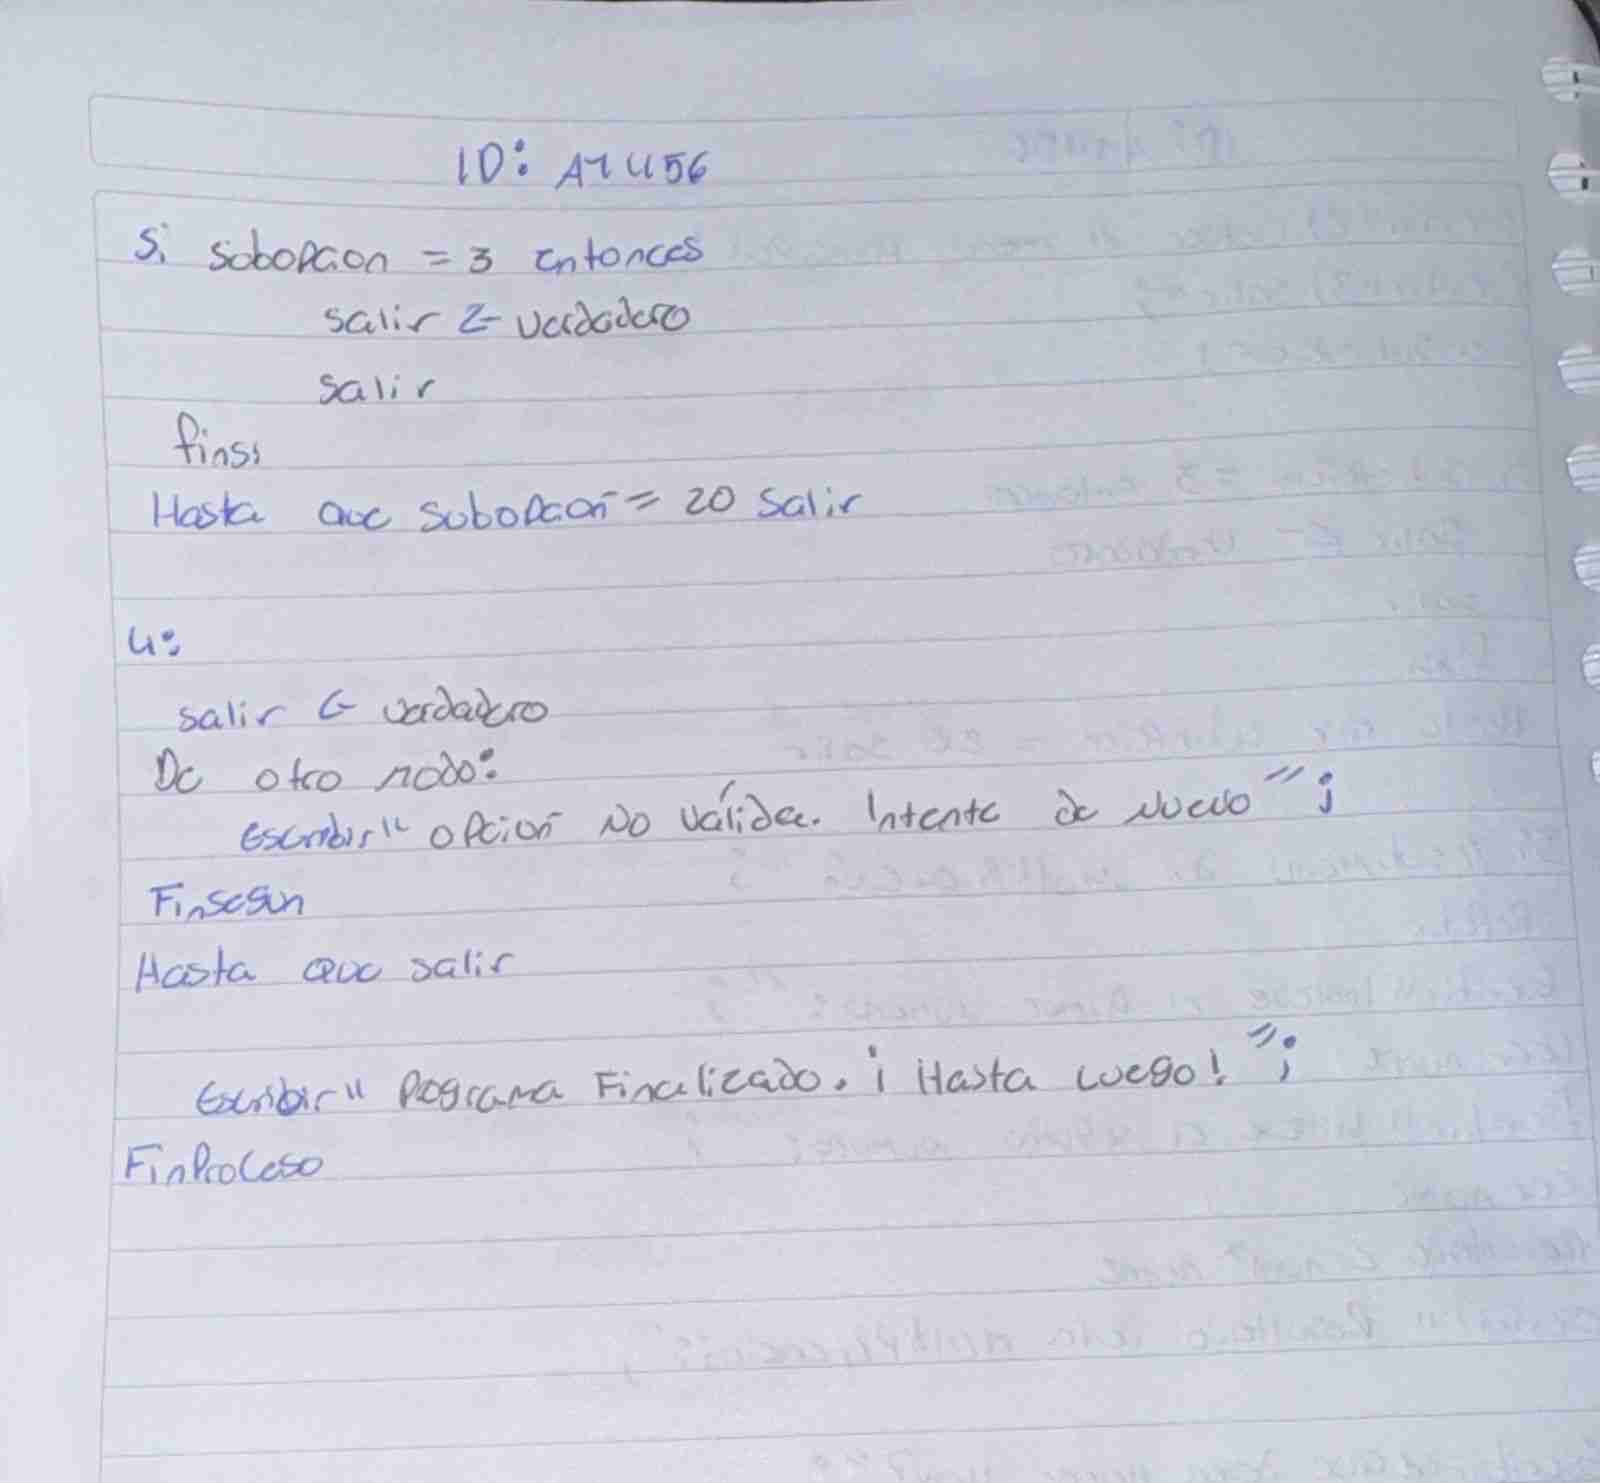 ID: A1456
Si subopcion = 3 entonces
salir <- verdadero
salir
finsi
Hasta que subopción = 20 salir
4:
salir <- verdadero
De otro modo:
Escribir " opción No válida. Intente de Nuevo ";
Finsegun
Hasta que salir
Escribir " Programa Finalizado. ¡ Hasta luego! ";
FinProceso